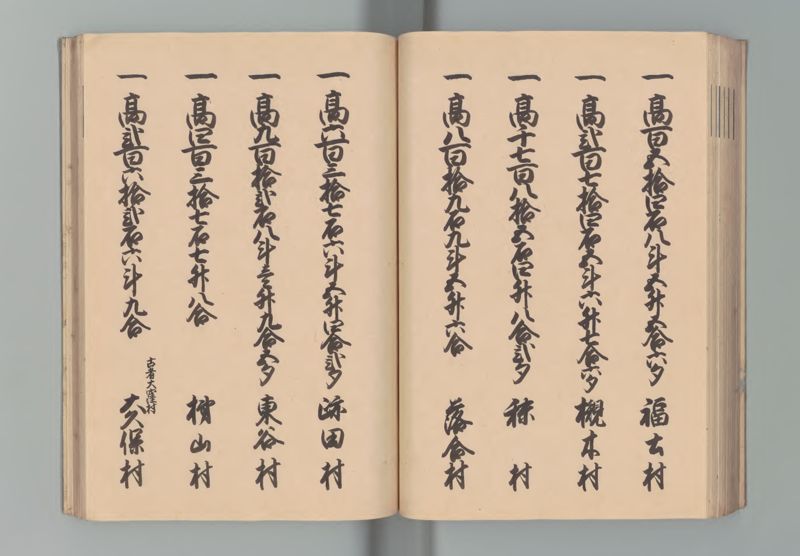 一高百五拾四石八斗五升五合六夕 福土村
一高弐百七拾四石五斗六升七合六夕 槻木村
一高千七百八拾五石四升八合弐夕 秣村
一高八百拾九石九斗五升六合 落合村
一高六百三拾七石六斗五升四合弐夕 跡田村
一高九百拾弐石八斗壱升九合五夕 東谷村
一高四百三拾七石七升八合 山村
一高弐百六拾弐石六斗九合 古者大窪村 大久保村